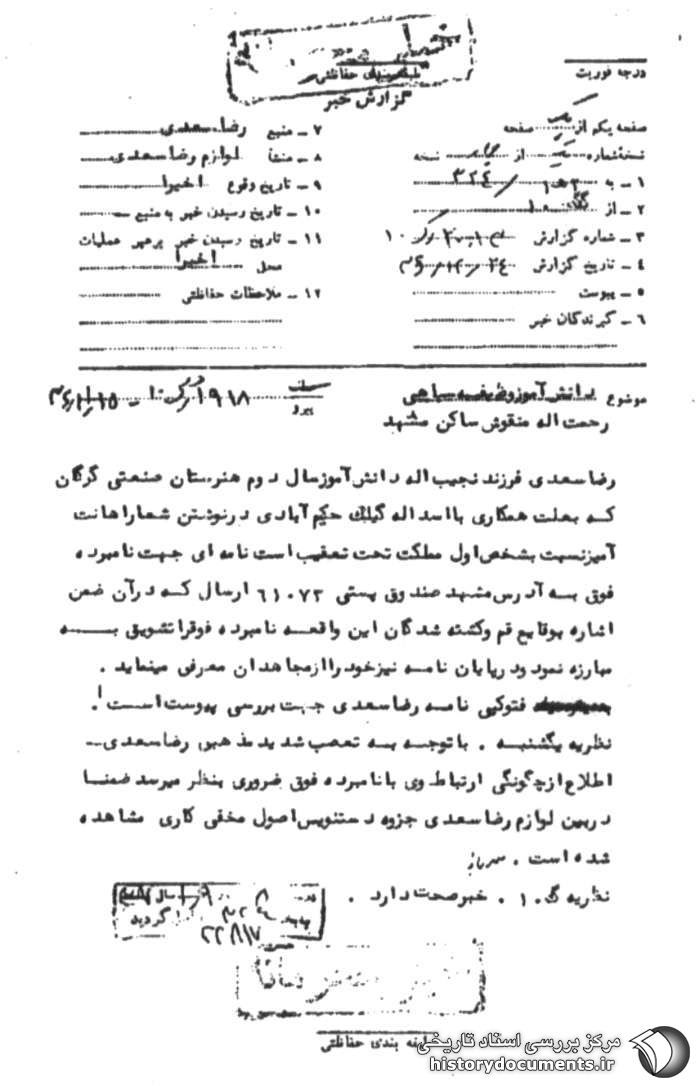 طبقه بندی حفاظتی
گزارش خبر
درجه فوریت
صفحه یکم از صفحه
نسخه شماره از نسخه
۱ ـ به ۳۲۴
۲ ـ از
۳ ـ شماره گزارش
۴ ـ تاریخ گزارش
۵ ـ پیوست
۶ ـ گیرندگان خبر
۷ ـ منبع رضا سعدی
۸ ـ منشأ لوازم رضا سعدی
۹ ـ تاریخ وقوع اخیرا
۱۰ ـ تاریخ رسیدن خبر به منبع
۱۱ ـ تاریخ رسیدن خبر برهبر عملیات
محل اخیرا
۱۲ ـ ملاحظات حفاظتی
موضوع دانش آموز وظیفه سپاهی
رحمت اله منقوش ساکن مشهد
رضا سعدی فرزند نجیب اله دانش آموز سال دوم هنرستان صنعتی گرگان
که بعلت همکاری با اسد اله گیلک حکیم آبادی در نوشتن شعار اهانت
آمیز نسبت بشخص اول مملکت تحت تعقیب است نامه ای جهت نامبرده
فوق به آدرس مشهد صندوق پستی ۶۱۰۷۲ ارسال که در آن ضمن
اشاره بوقایع قم و کشته شدگان این واقعه نامبرده فوق را تشویق به
مبارزه نمود و در پایان نامه نیز خود را از مجاهدان معرفی مینماید .
فتوکپی نامه رضا سعدی جهت بررسی پیوست است .
نظریه یکشنبه . با توجه به تعصب شدید مذهبی رضا سعدی ـ
اطلاع از چگونگی ارتباط وی با نامبرده فوق ضروری بنظر میرسد ضمنا
در بین لوازم رضا سعدی جزوه دستنویس اصول مخفی کاری مشاهده
شده است .
نظریه ک . ۱۰ . خبر صحت دارد .
گردید
طبقه بندی حفاظتی
مرکز بررسی اسناد تاریخی
historydocuments.ir